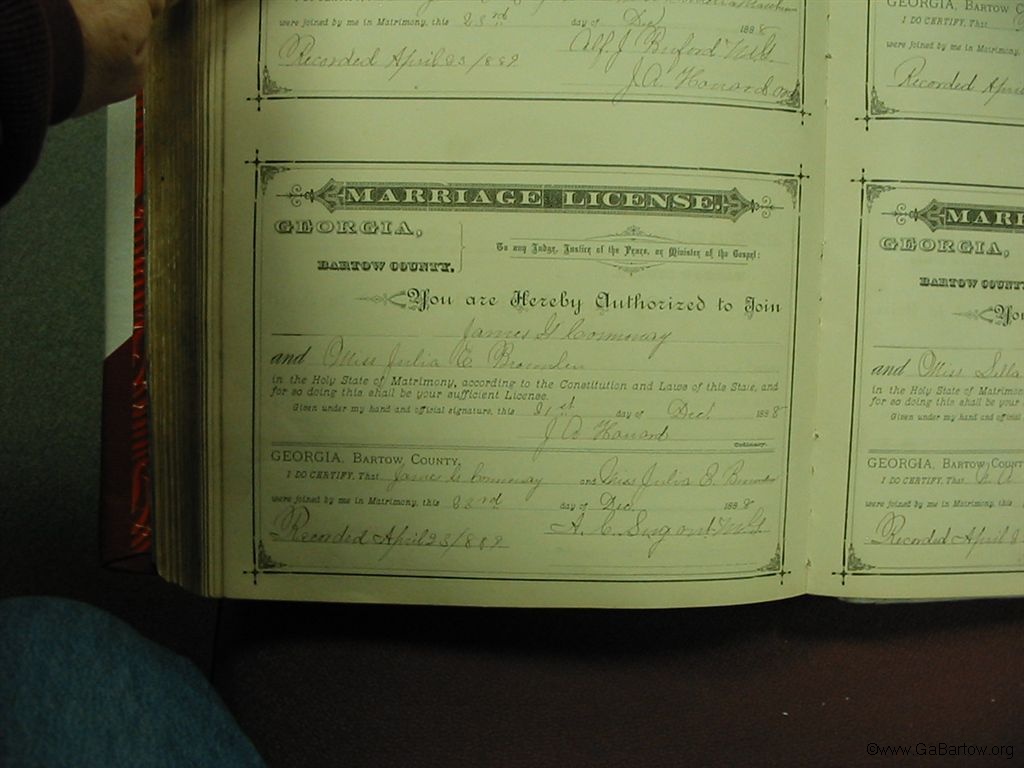 were joined by me in Matrimony, this 23rd day of Dec 1888
Recorded April 23/889
J. Buford M.G.
J. A. Howard
MARRIAGE LICENSE.
GEORGIA,
BARTOW COUNTY.
To any Judge, Justice of the Peace, or Minister of the Gospel:
You are Hereby Authorized to Join
James G Conmay
and Miss Julia E
in the Holy State of Matrimony, according to the Constitution and Laws of this State, and
for so doing this shall be your sufficient License.
Given under my hand and official signature, this 21st day of Dec! 1888
J A Howard Ordinary.
GEORGIA, BARTOW COUNTY.
I DO CERTIFY, That James G and Miss Julia E.
were joined by me in Matrimony, this 23rd day of Dec. 1888
A. C. M.G.
Recorded April 23/889
GEORGIA, BARTOW C
I DO CERTIFY, That
were joined by me in Matrimony,
Recorded April
MARR
GEORGIA,
BARTOW COUNTY
You
and Miss
in the Holy State of Matrimon
for so doing this shall be your
Given under my hand and official
GEORGIA, BARTOW COUNT
I DO CERTIFY, That
were joined by me in Matrimony, this
Recorded April
©www.GaBartow.org